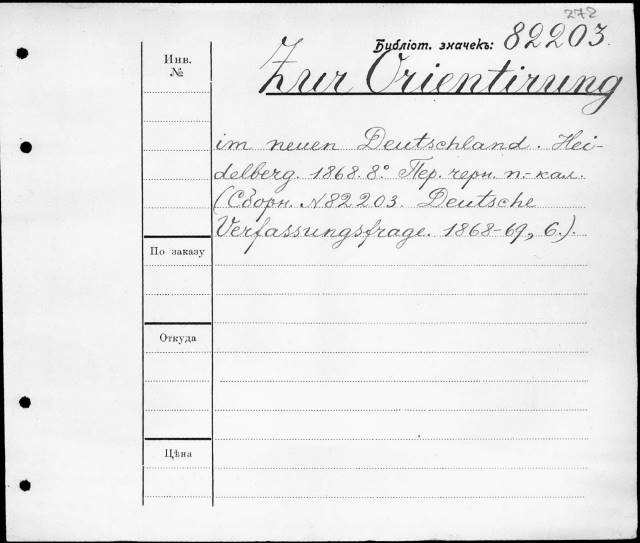 272
Библіот. значекъ: 82203.
Инв.
№
Zur Orientirung
im neuen Deutschland. Hei-
delberg. 1868. 8° Пер. черн. п.-кал.
(Сборн. № 82203. Deutsche
Verfassungsfrage. 1868-69, 6.).
По заказу
Откуда
Цѣна